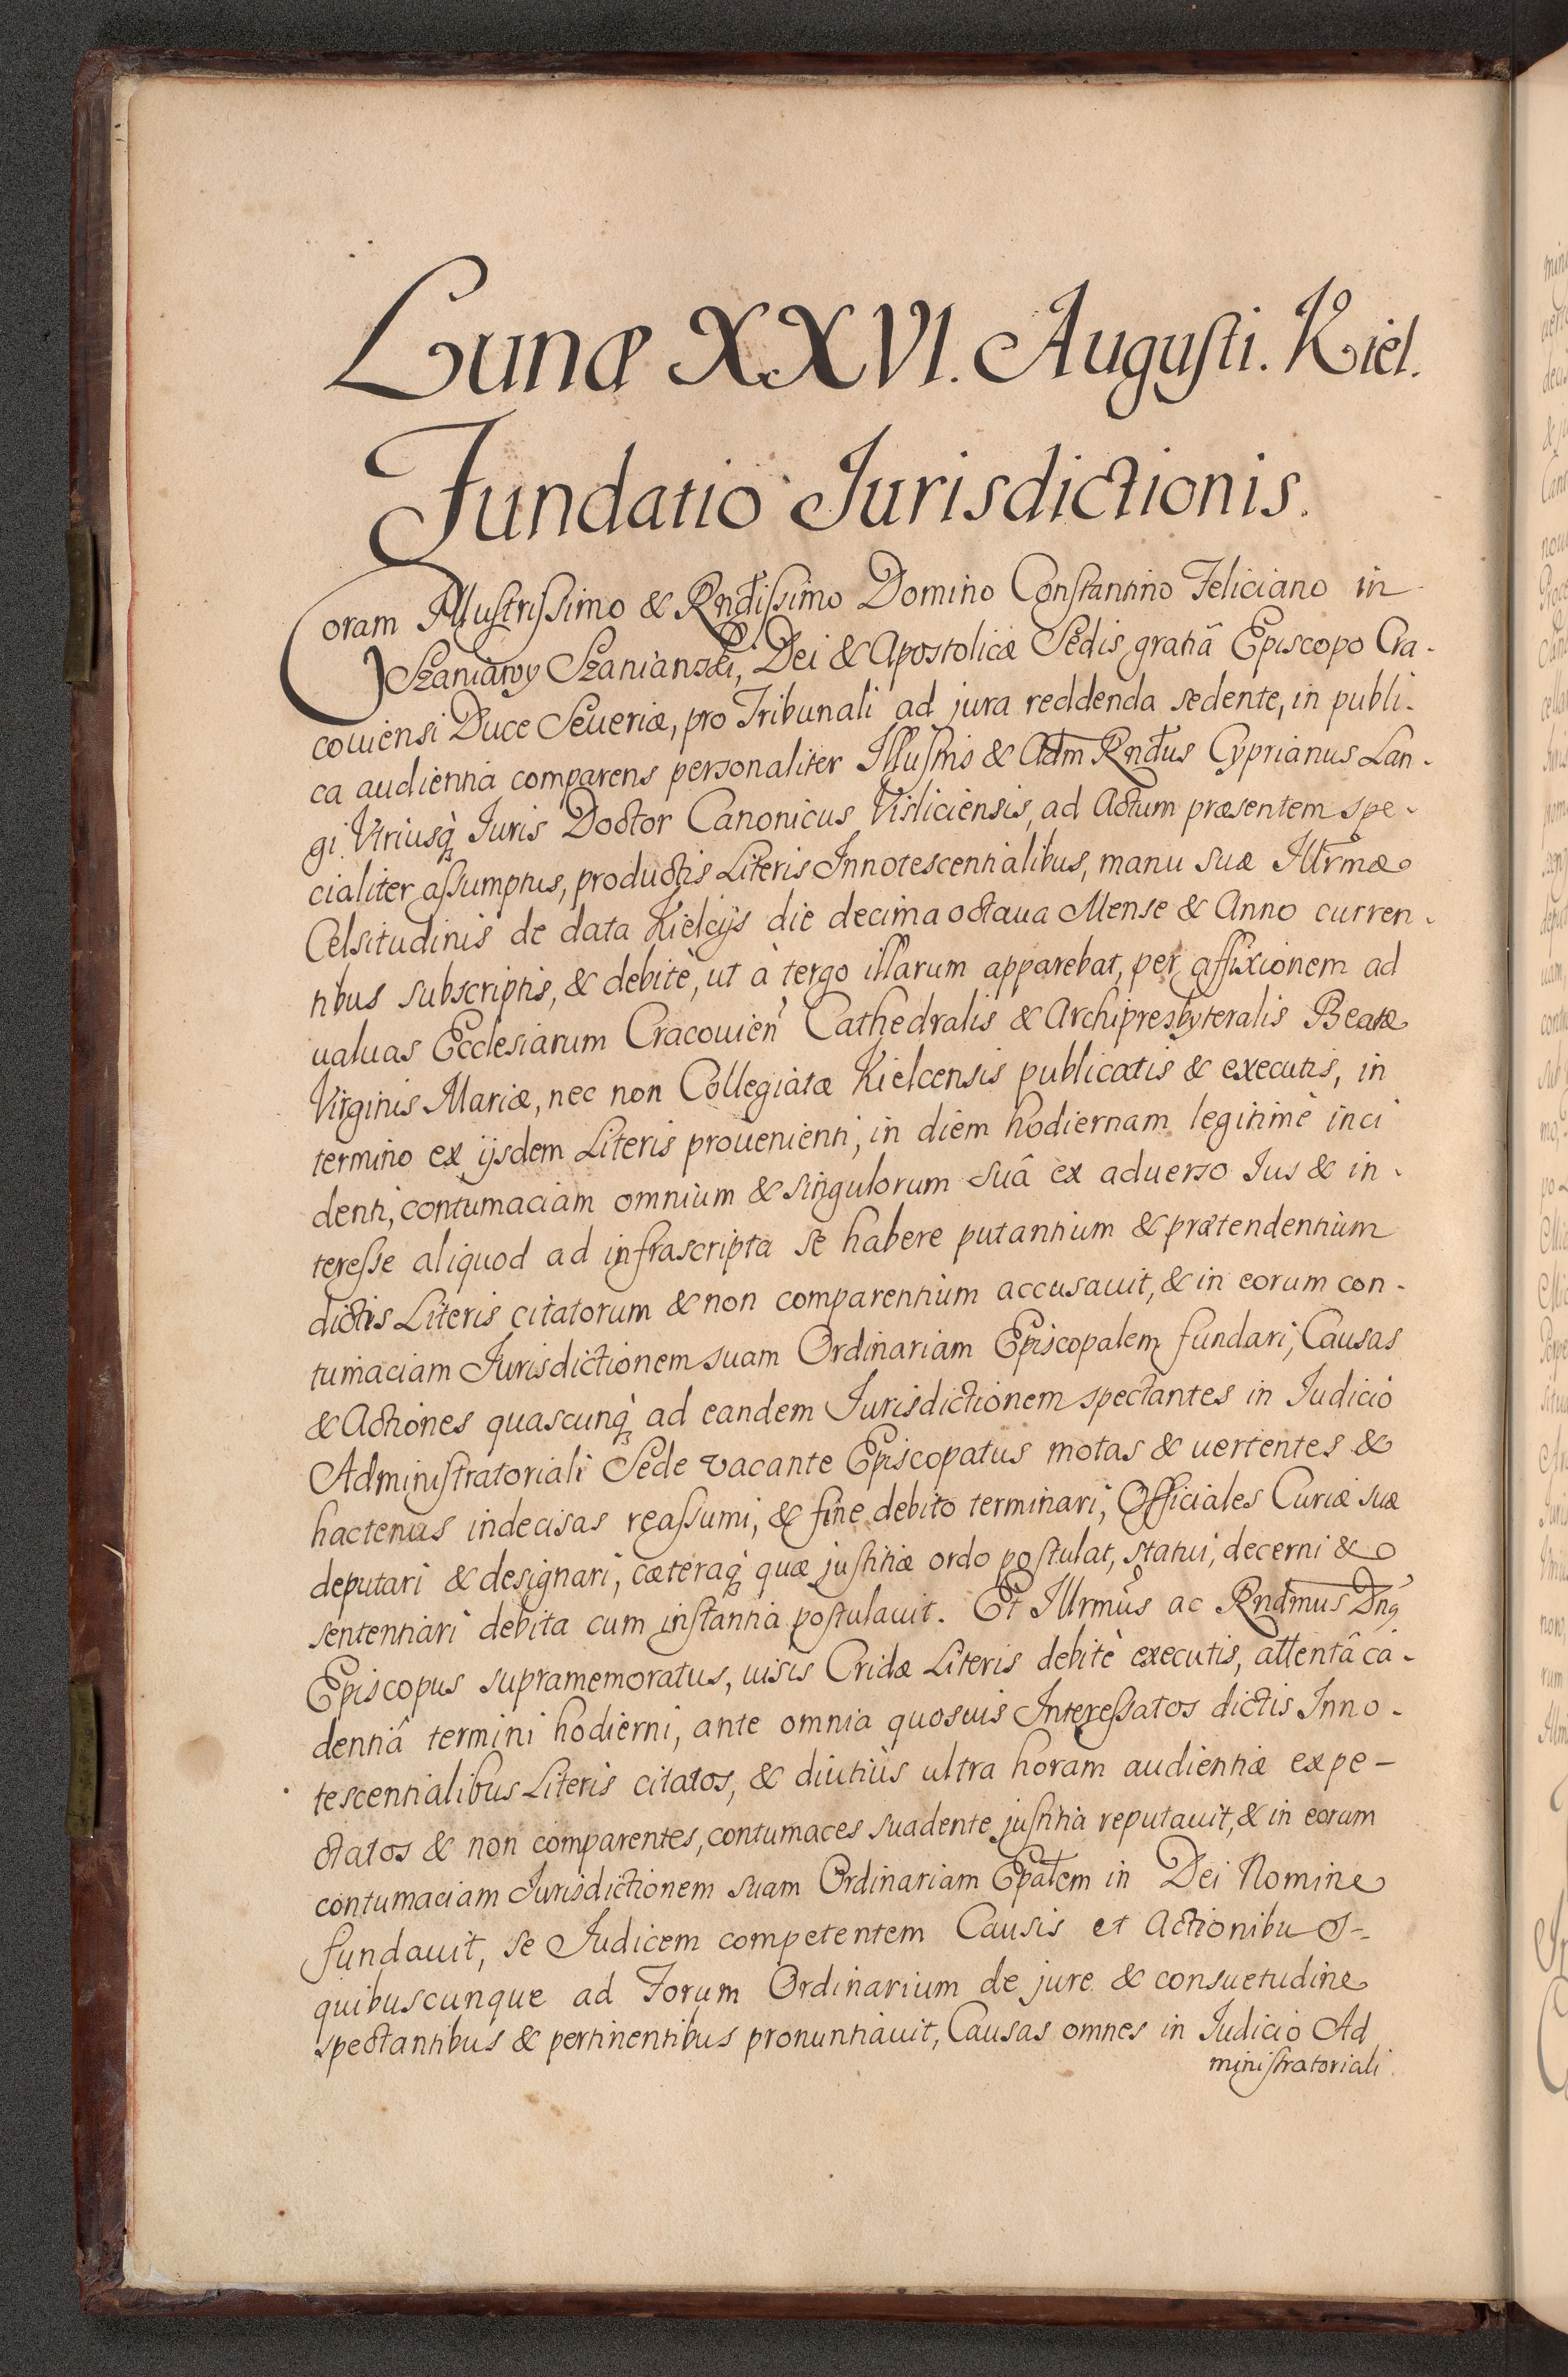 Lunæ XXVI. Augusti. Kiel.
Fundatio Jurisdictionis.
Coram Illustrissimo & Rndissimo Domino Constantino Feliciano in
Szaniawy Szaniawski, Dei & Apostolicæ Sedis gratiâ Episcopo Cra-
couiensi Duce Seueriæ, pro Tribunali ad jura reddenda sedente, in publi-
ca audientia comparens personaliter Illustris & Adm Rndus Cyprianus Lan-
gi Vtriusq; Juris Doctor Canonicus Visliciensis, ad Actum præsentem spe-
cialiter assumptus, productis Literis Innotescentialibus, manu suæ Illrmæ
Celsitudinis de data Kielcijs die decima octaua Mense & Anno curren-
tibus subscriptis, & debitè, ut à tergo illarum apparebat, per affixionem ad
ualuas Ecclesiarum Cracouien Cathedralis & Archipresbyteralis Beatæ
Virginis Mariæ, nec non Collegiatæ Kielcensis publicatis & executis, in
termino ex ijsdem Literis prouenienti, in diem hodiernam legitimè inci
denti, contumaciam omnium & singulorum suâ ex aduerso Jus & in-
teresse aliquod ad infrascripta se habere putantium & prætendentium
dictis Literis citatorum & non comparentium accusauit, & in eorum con-
tumaciam Jurisdictionem suam Ordinariam Episcopalem fundari, Causas
& Actiones quascunq; ad eandem Jurisdictionem spectantes in Judicio
Administratoriali Sede vacante Episcopatus motas & uertentes &
hactenus indecisas reassumi, & fine debito terminari, Officiales Curiæ suæ
deputari & designari, cæteraq; quæ justitiæ ordo postulat, statui, decerni &
sententiari debita cum instantia postulauit. Et Illrmus ac Rndmus Dng
Episcopus supramemoratus, uisis Cridæ Literis debitè executis, attentâ ca-
dentiâ termini hodierni, ante omnia quosuis Interessatos dictis Inno-
tescentialibus Literis citatos, & diutiùs ultra horam audientiæ expe-
ctatos & non comparentes, contumaces suadente justitia reputauit, & in eorum
contumaciam Jurisdictionem suam Ordinariam Epalem in Dei Nomine
fundauit, se Judicem competentem Causis et Actionibus
quibuscunque ad Forum Ordinarium de jure & consuetudine
spectantibus & pertinentibus pronuntiauit, Causas omnes in Judicio Ad
ministratoriali